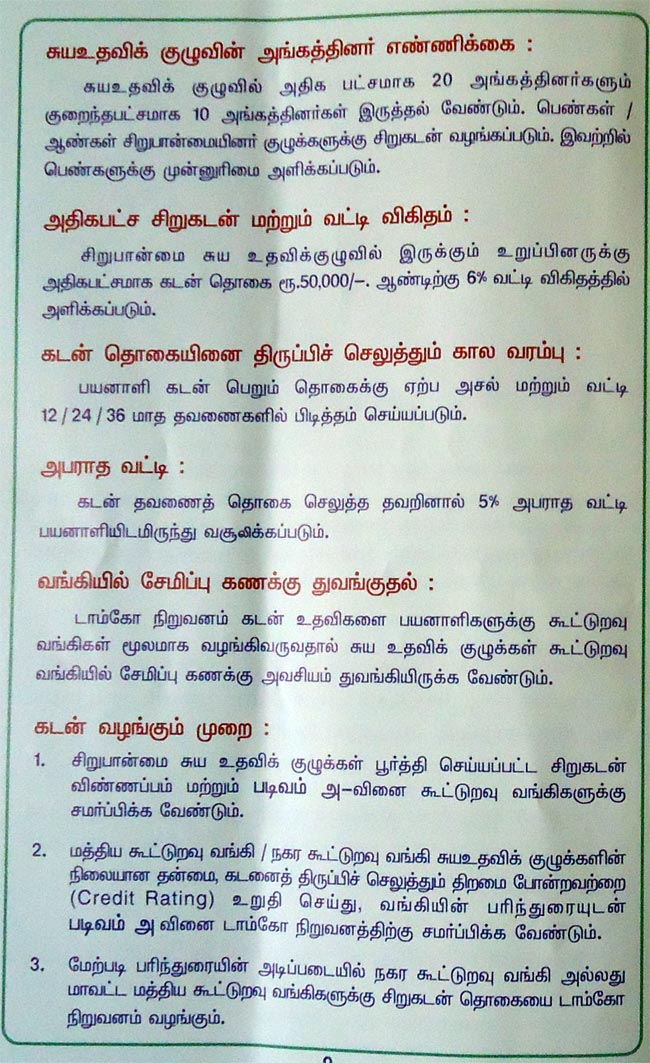 சுயஉதவிக் குழுவின் அங்கத்தினர் எண்ணிக்கை :
சுயஉதவிக் குழுவில் அதிக பட்சமாக 20 அங்கத்தினர்களும்
குறைந்தபட்சமாக 10 அங்கத்தினர்கள் இருத்தல் வேண்டும். பெண்கள் /
ஆண்கள் சிறுபான்மையினர் குழுக்களுக்கு சிறுகடன் வழங்கப்படும். இவற்றில்
பெண்களுக்கு முன்னுரிமை அளிக்கப்படும்.
அதிகபட்ச சிறுகடன் மற்றும் வட்டி விகிதம் :
சிறுபான்மை சுய உதவிக்குழுவில் இருக்கும் உறுப்பினருக்கு
அதிகபட்சமாக கடன் தொகை ரூ.50,000/–. ஆண்டிற்கு 6% வட்டி விகிதத்தில்
அளிக்கப்படும்.
கடன் தொகையினை திருப்பிச் செலுத்தும் கால வரம்பு :
பயனாளி கடன் பெறும் தொகைக்கு ஏற்ப அசல் மற்றும் வட்டி
12 / 24 / 36 மாத தவணைகளில் பிடித்தம் செய்யப்படும்.
அபராத வட்டி :
கடன் தவணைத் தொகை செலுத்த தவறினால் 5% அபராத வட்டி
பயனாளியிடமிருந்து வசூலிக்கப்படும்.
வங்கியில் சேமிப்பு கணக்கு துவங்குதல் :
டாம்கோ நிறுவனம் கடன் உதவிகளை பயனாளிகளுக்கு கூட்டுறவு
வங்கிகள் மூலமாக வழங்கிவருவதால் சுய உதவிக் குழுக்கள் கூட்டுறவு
வங்கியில் சேமிப்பு கணக்கு அவசியம் துவங்கியிருக்க வேண்டும்.
கடன் வழங்கும் முறை :
1. சிறுபான்மை சுய உதவிக் குழுக்கள் பூர்த்தி செய்யப்பட்ட சிறுகடன்
விண்ணப்பம் மற்றும் படிவம் அ–வினை கூட்டுறவு வங்கிகளுக்கு
சமர்ப்பிக்க வேண்டும்.
2. மத்திய கூட்டுறவு வங்கி / நகர கூட்டுறவு வங்கி சுயஉதவிக் குழுக்களின்
நிலையான தன்மை, கடனைத் திருப்பிச் செலுத்தும் திறமை போன்றவற்றை
(Credit Rating) உறுதி செய்து, வங்கியின் பரிந்துரையுடன்
படிவம் அ வினை டாம்கோ நிறுவனத்திற்கு சமர்ப்பிக்க வேண்டும்.
3. மேற்படி பரிந்துரையின் அடிப்படையில் நகர கூட்டுறவு வங்கி அல்லது
மாவட்ட மத்திய கூட்டுறவு வங்கிகளுக்கு சிறுகடன் தொகையை டாம்கோ
நிறுவனம் வழங்கும்.